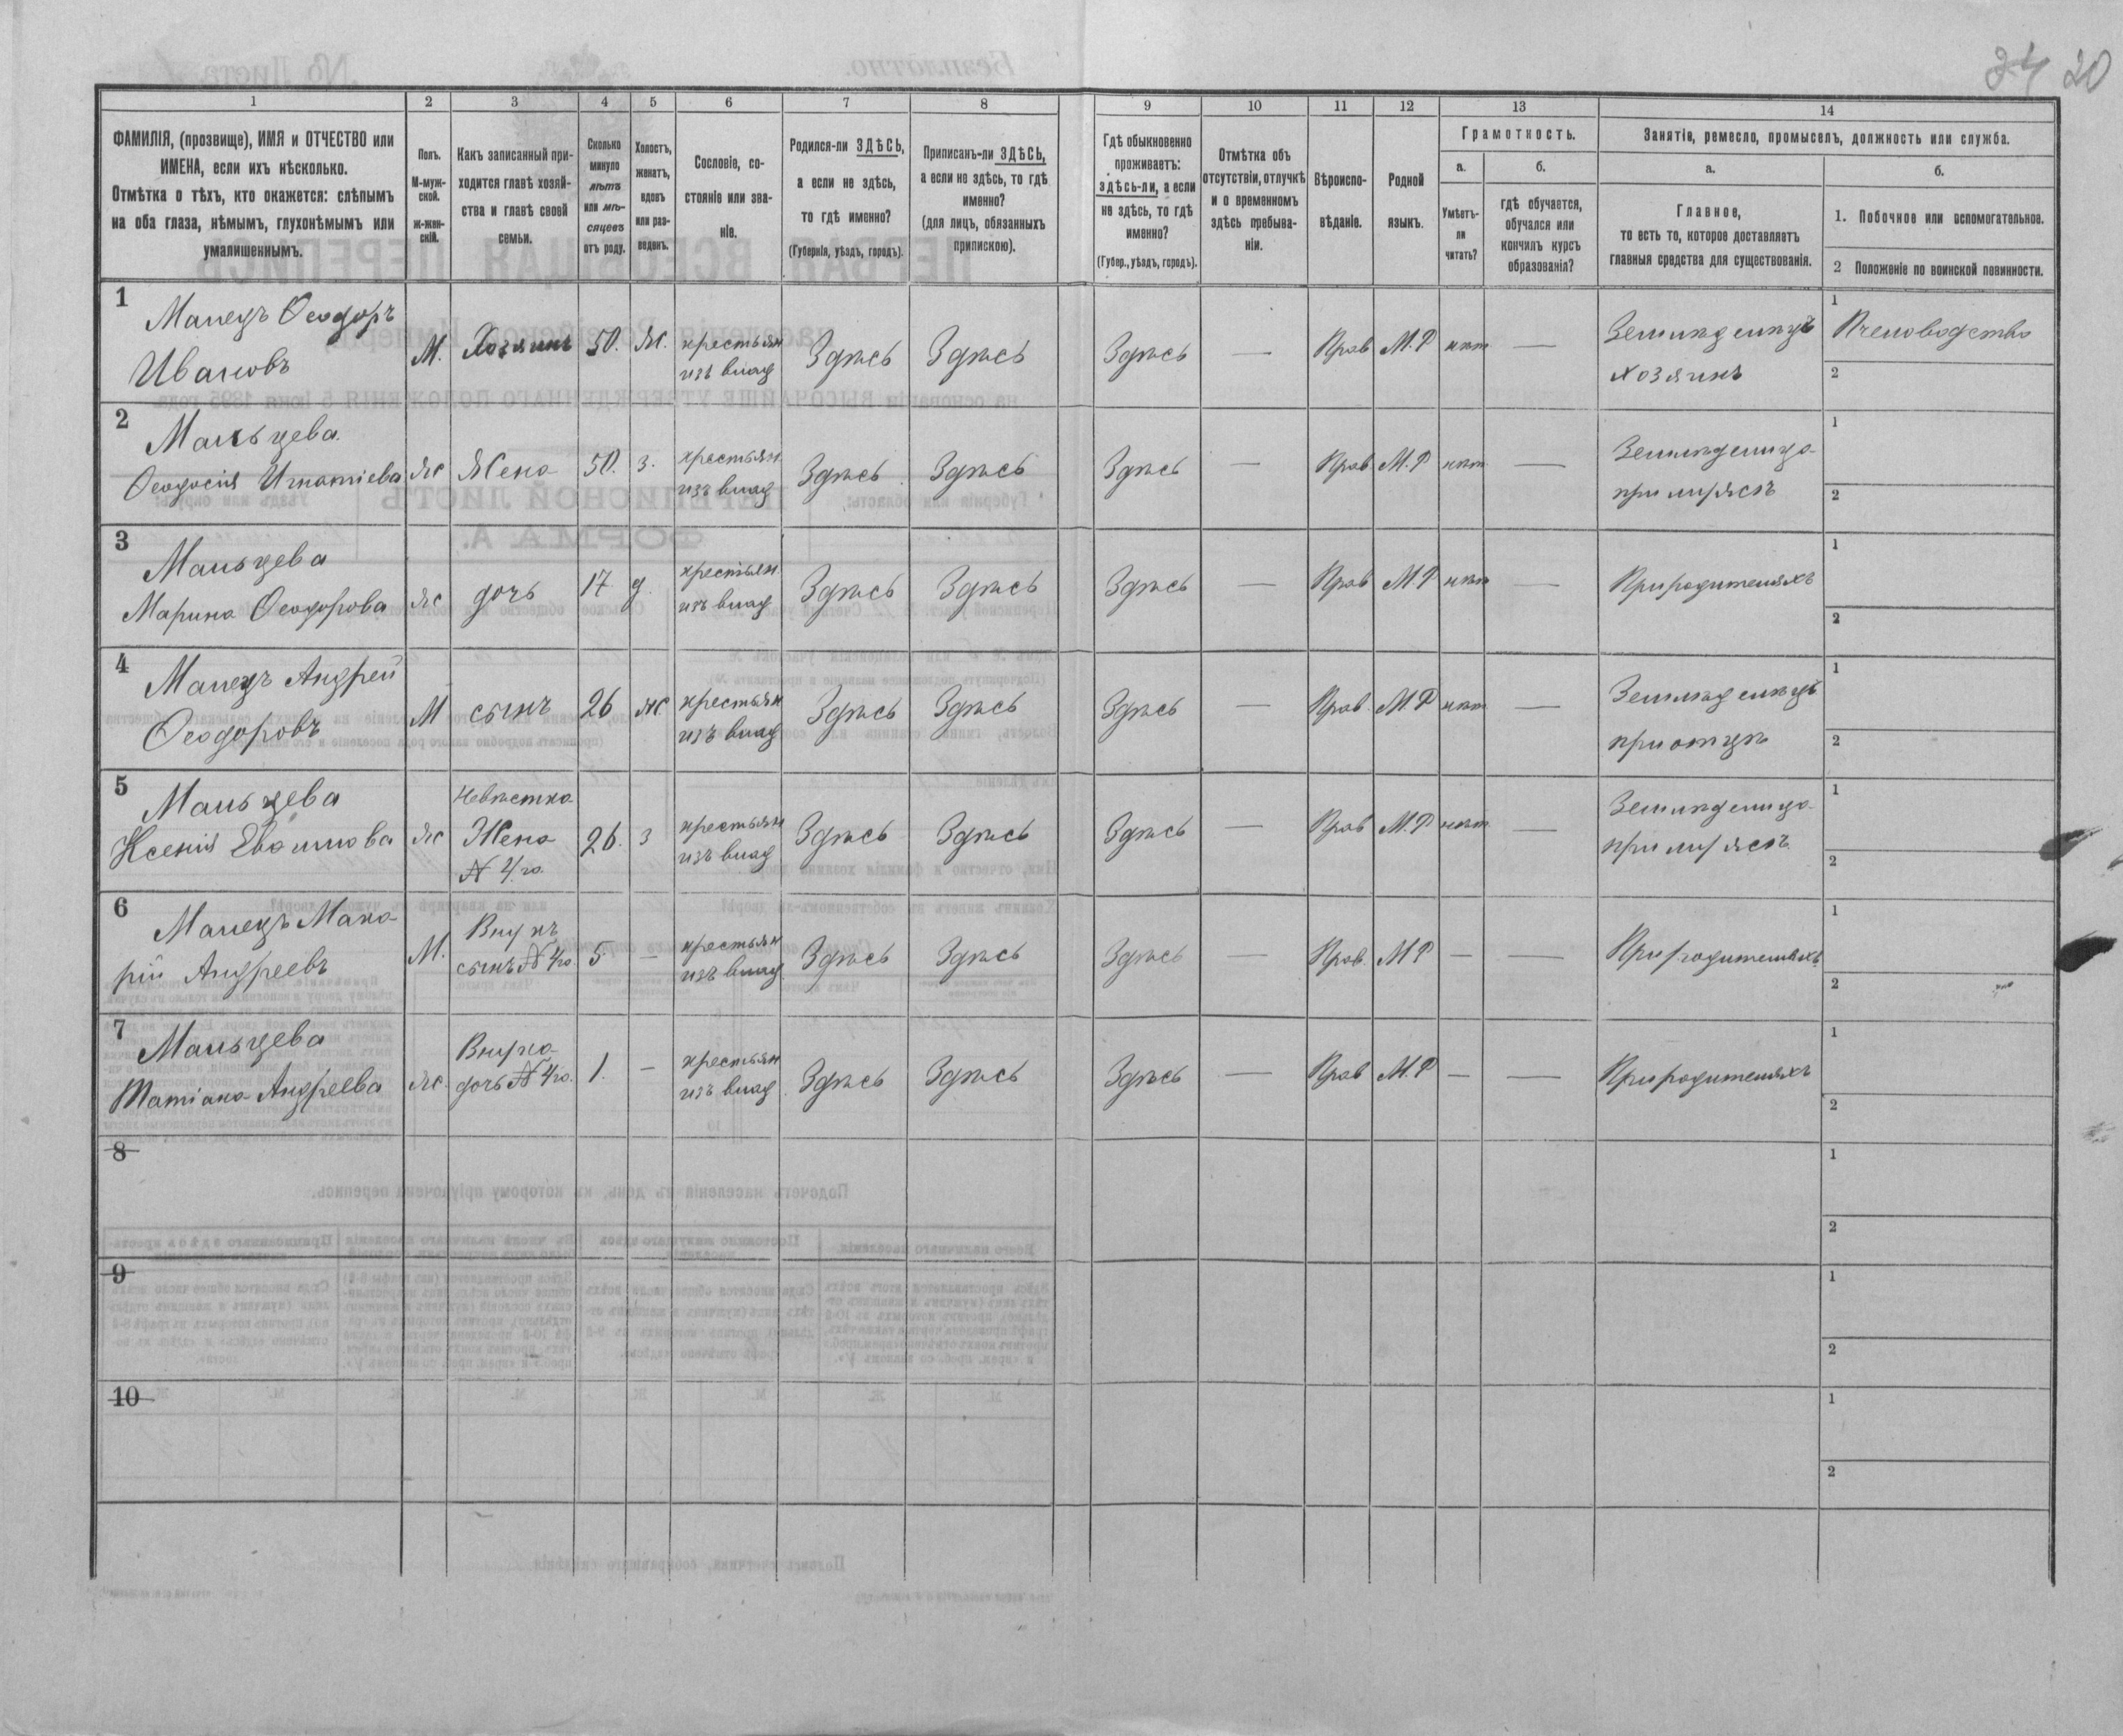 34 20
1 2 3 4 5 6 7 8 9 10 11 12 13 14
ФАМИЛІЯ, (прозвище), ИМЯ и ОТЧЕСТВО или
ИМЕНА, если ихъ нѣсколько.
Отмѣтка о тѣхъ, кто окажется: слѣпымъ
на оба глаза, нѣмымъ, глухонѣмымъ или
умалишеннымъ.
Полъ.
М-муж-
ской.
ж-жен-
скій.
Какъ записанный при-
ходится главѣ хозяй-
ства и главѣ своей
семьи.
Сколько
минуло
лѣтъ
или мѣ-
сяцевъ
отъ роду.
Холостъ,
женатъ,
вдовъ
или раз-
веденъ.
Сословіе, со-
стояніе или зва-
ніе.
Родился-ли ЗДѢСЬ,
а если не здѣсь,
то гдѣ именно?
(Губернія, уѣздъ, городъ).
Приписанъ-ли ЗДѢСЬ,
а если не здѣсь, то гдѣ
именно?
(для лицъ, обязанныхъ
припискою).
Гдѣ обыкновенно
проживаетъ:
здѣсь-ли, а если
не здѣсь, то гдѣ
именно?
(Губер., уѣздъ, городъ).
Отмѣтка объ
отсутствіи, отлучкѣ
и о временномъ
здѣсь пребыва-
ніи.
Вѣроиспо-
вѣданіе.
Родной
языкъ.
Грамотность.
а.
Умѣетъ-
ли
читать?
б.
гдѣ обучается,
обучался или
кончилъ курсъ
образованія?
Занятія, ремесло, промыселъ, должность или служба.
а.
Главное,
то есть то, которое доставляетъ
главныя средства для существованія.
б.
1. Побочное или вспомогательное.
2 Положеніе по воинской повинности.
1 Малецъ Ѳеодоръ
Ивановъ
М. Хозяинъ 50. Ж. крестьян
изъ влад Здѣсь Здѣсь Здѣсь — Прав М.Р нѣт — Земледѣлецъ
хозяинъ
1 Пчеловодство
2
2 Мальцева
Ѳеодосія Игнатіева Ж Жена 50. З. крестьян
изъ влад Здѣсь Здѣсь Здѣсь — Прав М.Р нѣт — Земледѣлица
при мужѣ
1
2
3 Мальцева
Марина Ѳеодорова Ж дочь 17 д. крестьян
изъ влад Здѣсь Здѣсь Здѣсь — Прав М.Р нѣт — При родителяхъ
1
2
4 Малецъ Андрей
Ѳеодоровъ М сынъ 26 Ж. крестьян
изъ влад Здѣсь Здѣсь Здѣсь — Прав. М.Р нѣт — Земледѣлецъ
при отцѣ
1
2
5 Мальцева
Ксенія Ж Невѣстка
Жена
№ 4го. 26. З крестьян
изъ влад Здѣсь Здѣсь Здѣсь — Прав М.Р нѣт — Земледѣлица
при мужѣ
1
2
6 Малецъ Мака-
рій Андреевъ М. Внукъ
сынъ № 4го. 5. — крестьян
изъ влад Здѣсь Здѣсь Здѣсь — Прав. М.Р — — При родителяхъ
1
2
7 Мальцева
Татіана Андреева Ж. Внучка
дочь № 4го. 1. — крестьян
изъ влад Здѣсь Здѣсь Здѣсь — Прав М.Р — — При родителяхъ
1
2
8
1
2
9
1
2
10
1
2